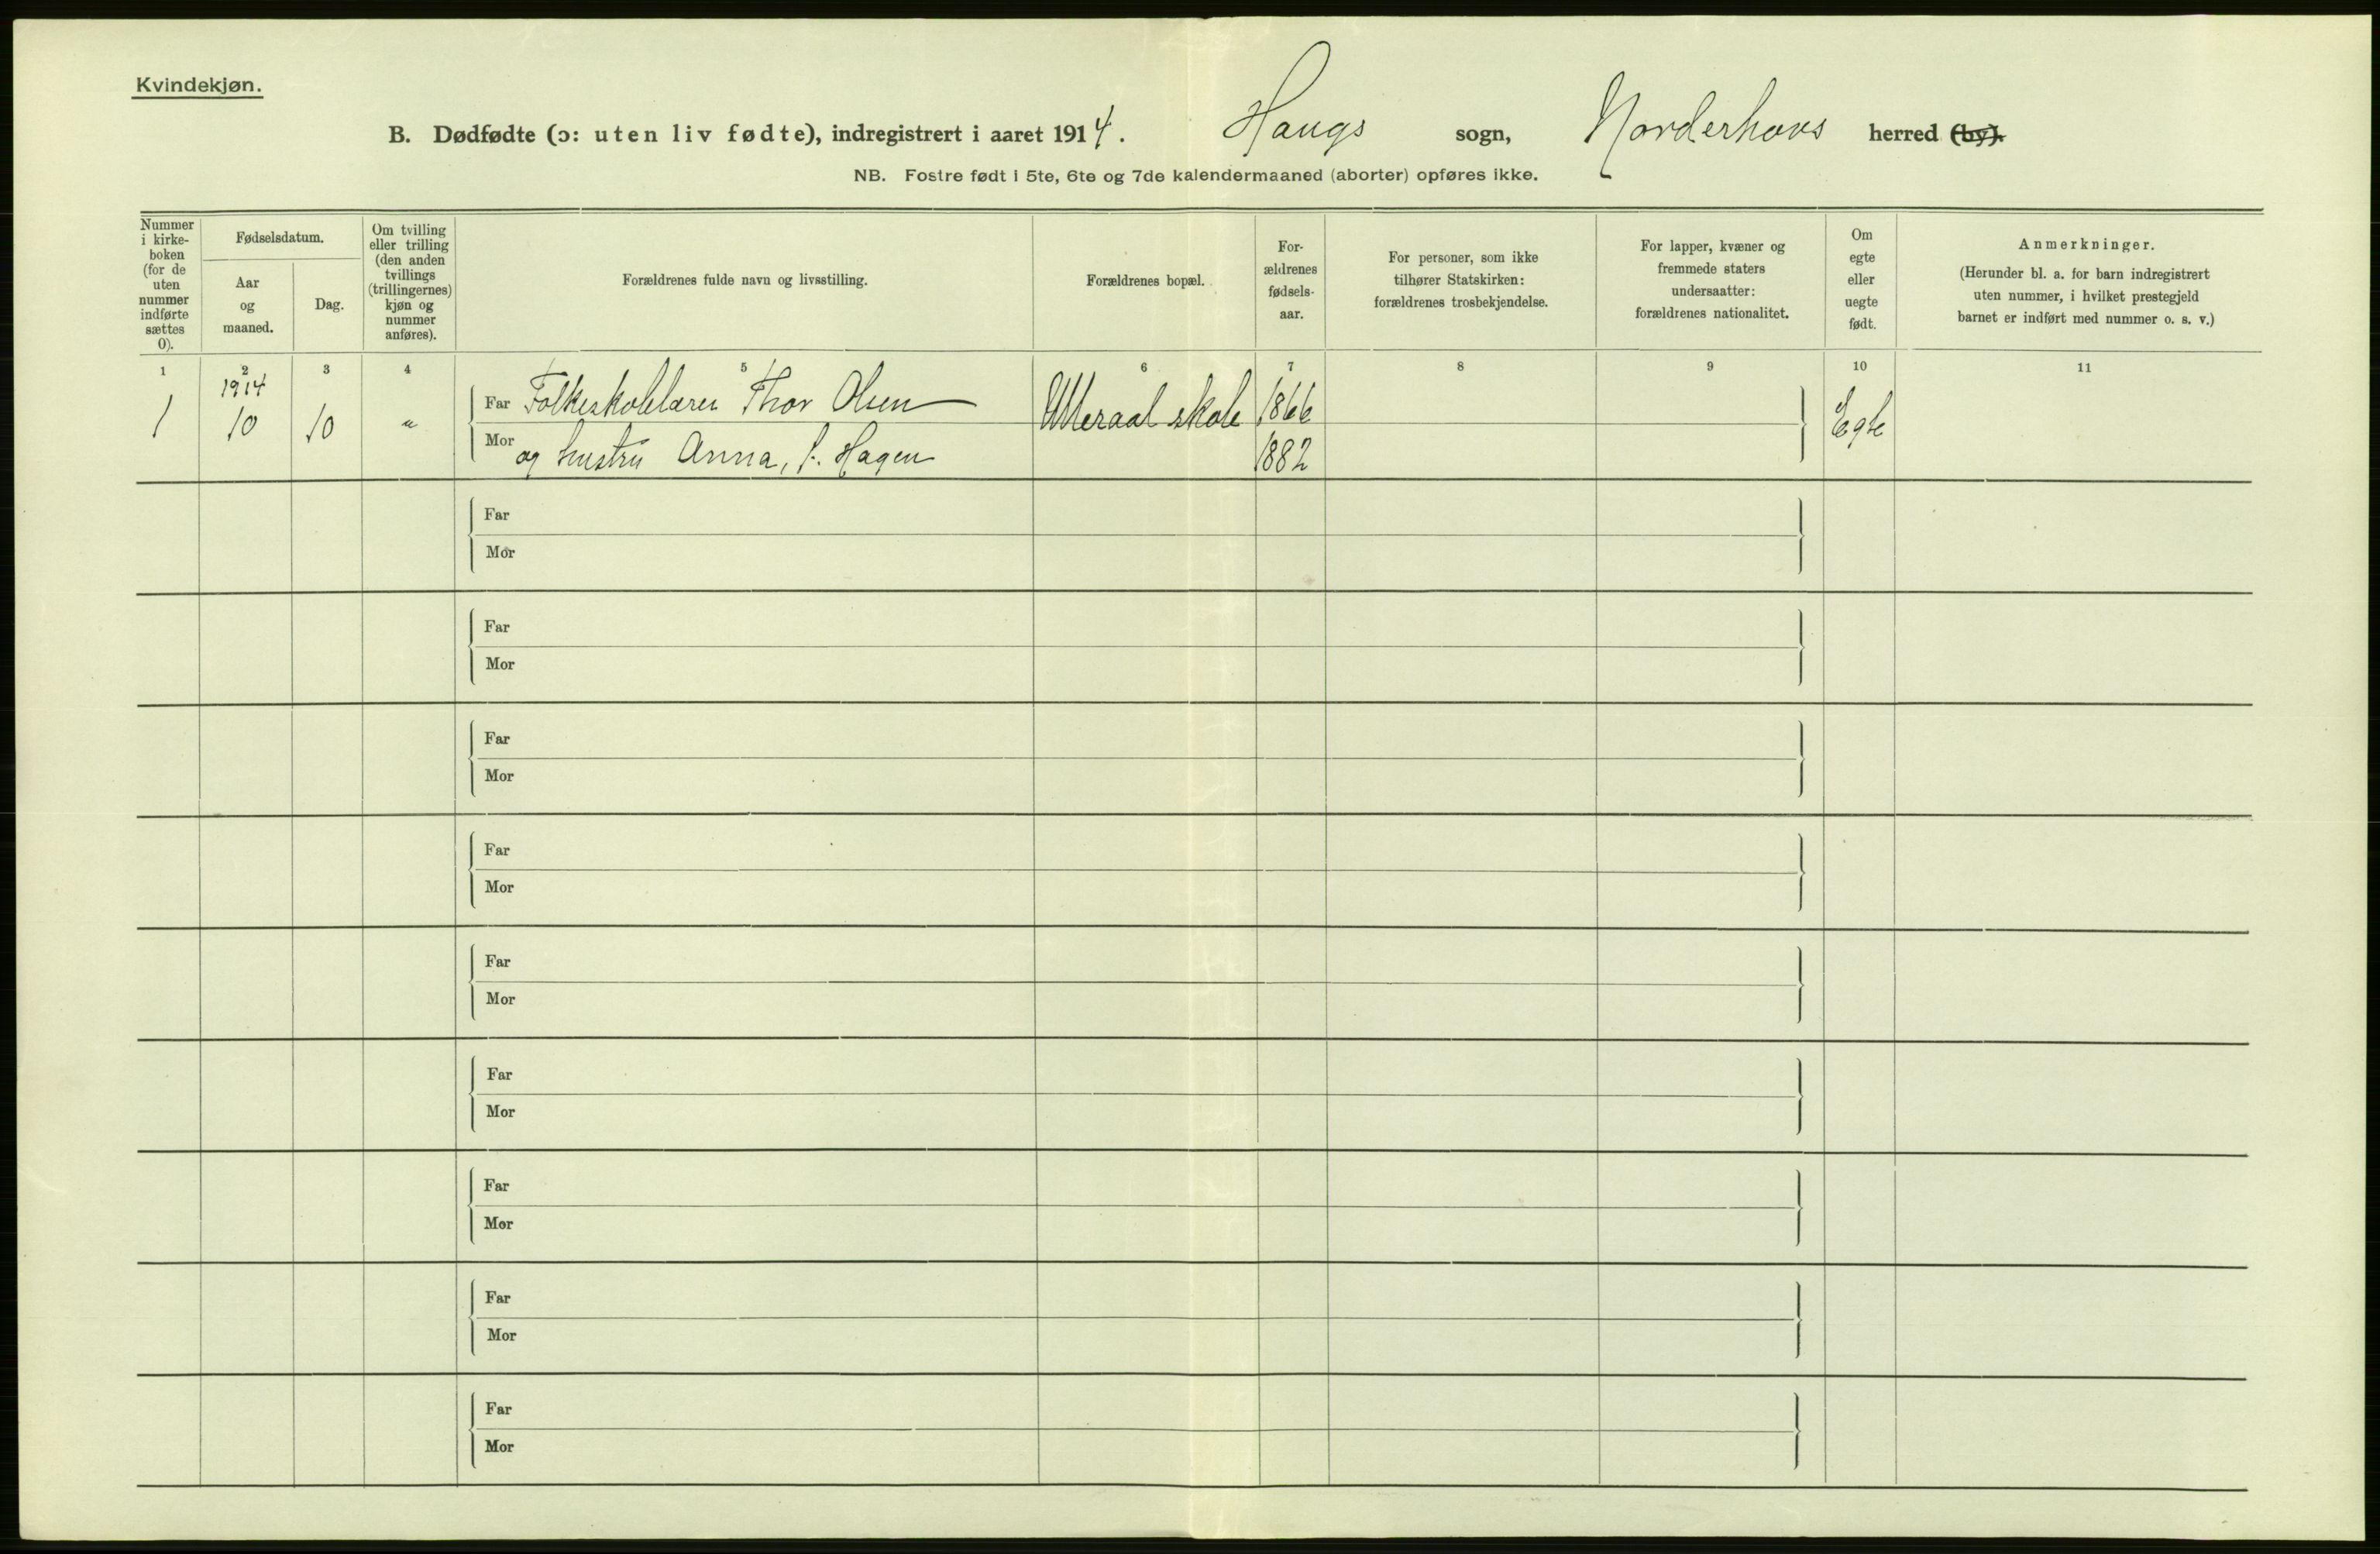 Kvindekjøn.
B. Dødfødte (ɔ: uten liv fødte), indregistrert i aaret 1914. Haugs sogn, Norderhovs herred (by).
NB. Fostre født i 5te, 6te og 7de kalendermaaned (aborter) opføres ikke.
Nummer i kirke-boken (for de uten nummer indførte sættes 0).
Fødselsdatum.
Aar og maaned.
Dag.
Om tvilling eller trilling (den anden tvillings (trillingernes) kjøn og nummer anføres).
Forældrenes fulde navn og livsstilling.
Forældrenes bopæl.
For-ældrenes fødsels-aar.
For personer, som ikke tilhører Statskirken: forældrenes trosbekjendelse.
For lapper, kvæner og fremmede staters undersaatter: forældrenes nationalitet.
Om egte eller uegte født.
Anmerkninger.
(Herunder bl. a. for barn indregistrert uten nummer, i hvilket prestegjeld barnet er indført med nummer o. s. v.)
1 2 3 4 5 6 7 8 9 10 11
1914
1 10 10 " Far Folkeskolelærer Thor Olsen Ulleraal skole 1866 Egte
Mor og hustru Anna, f. Hagen 1882
Far
Mor
Far
Mor
Far
Mor
Far
Mor
Far
Mor
Far
Mor
Far
Mor
Far
Mor
Far
Mor